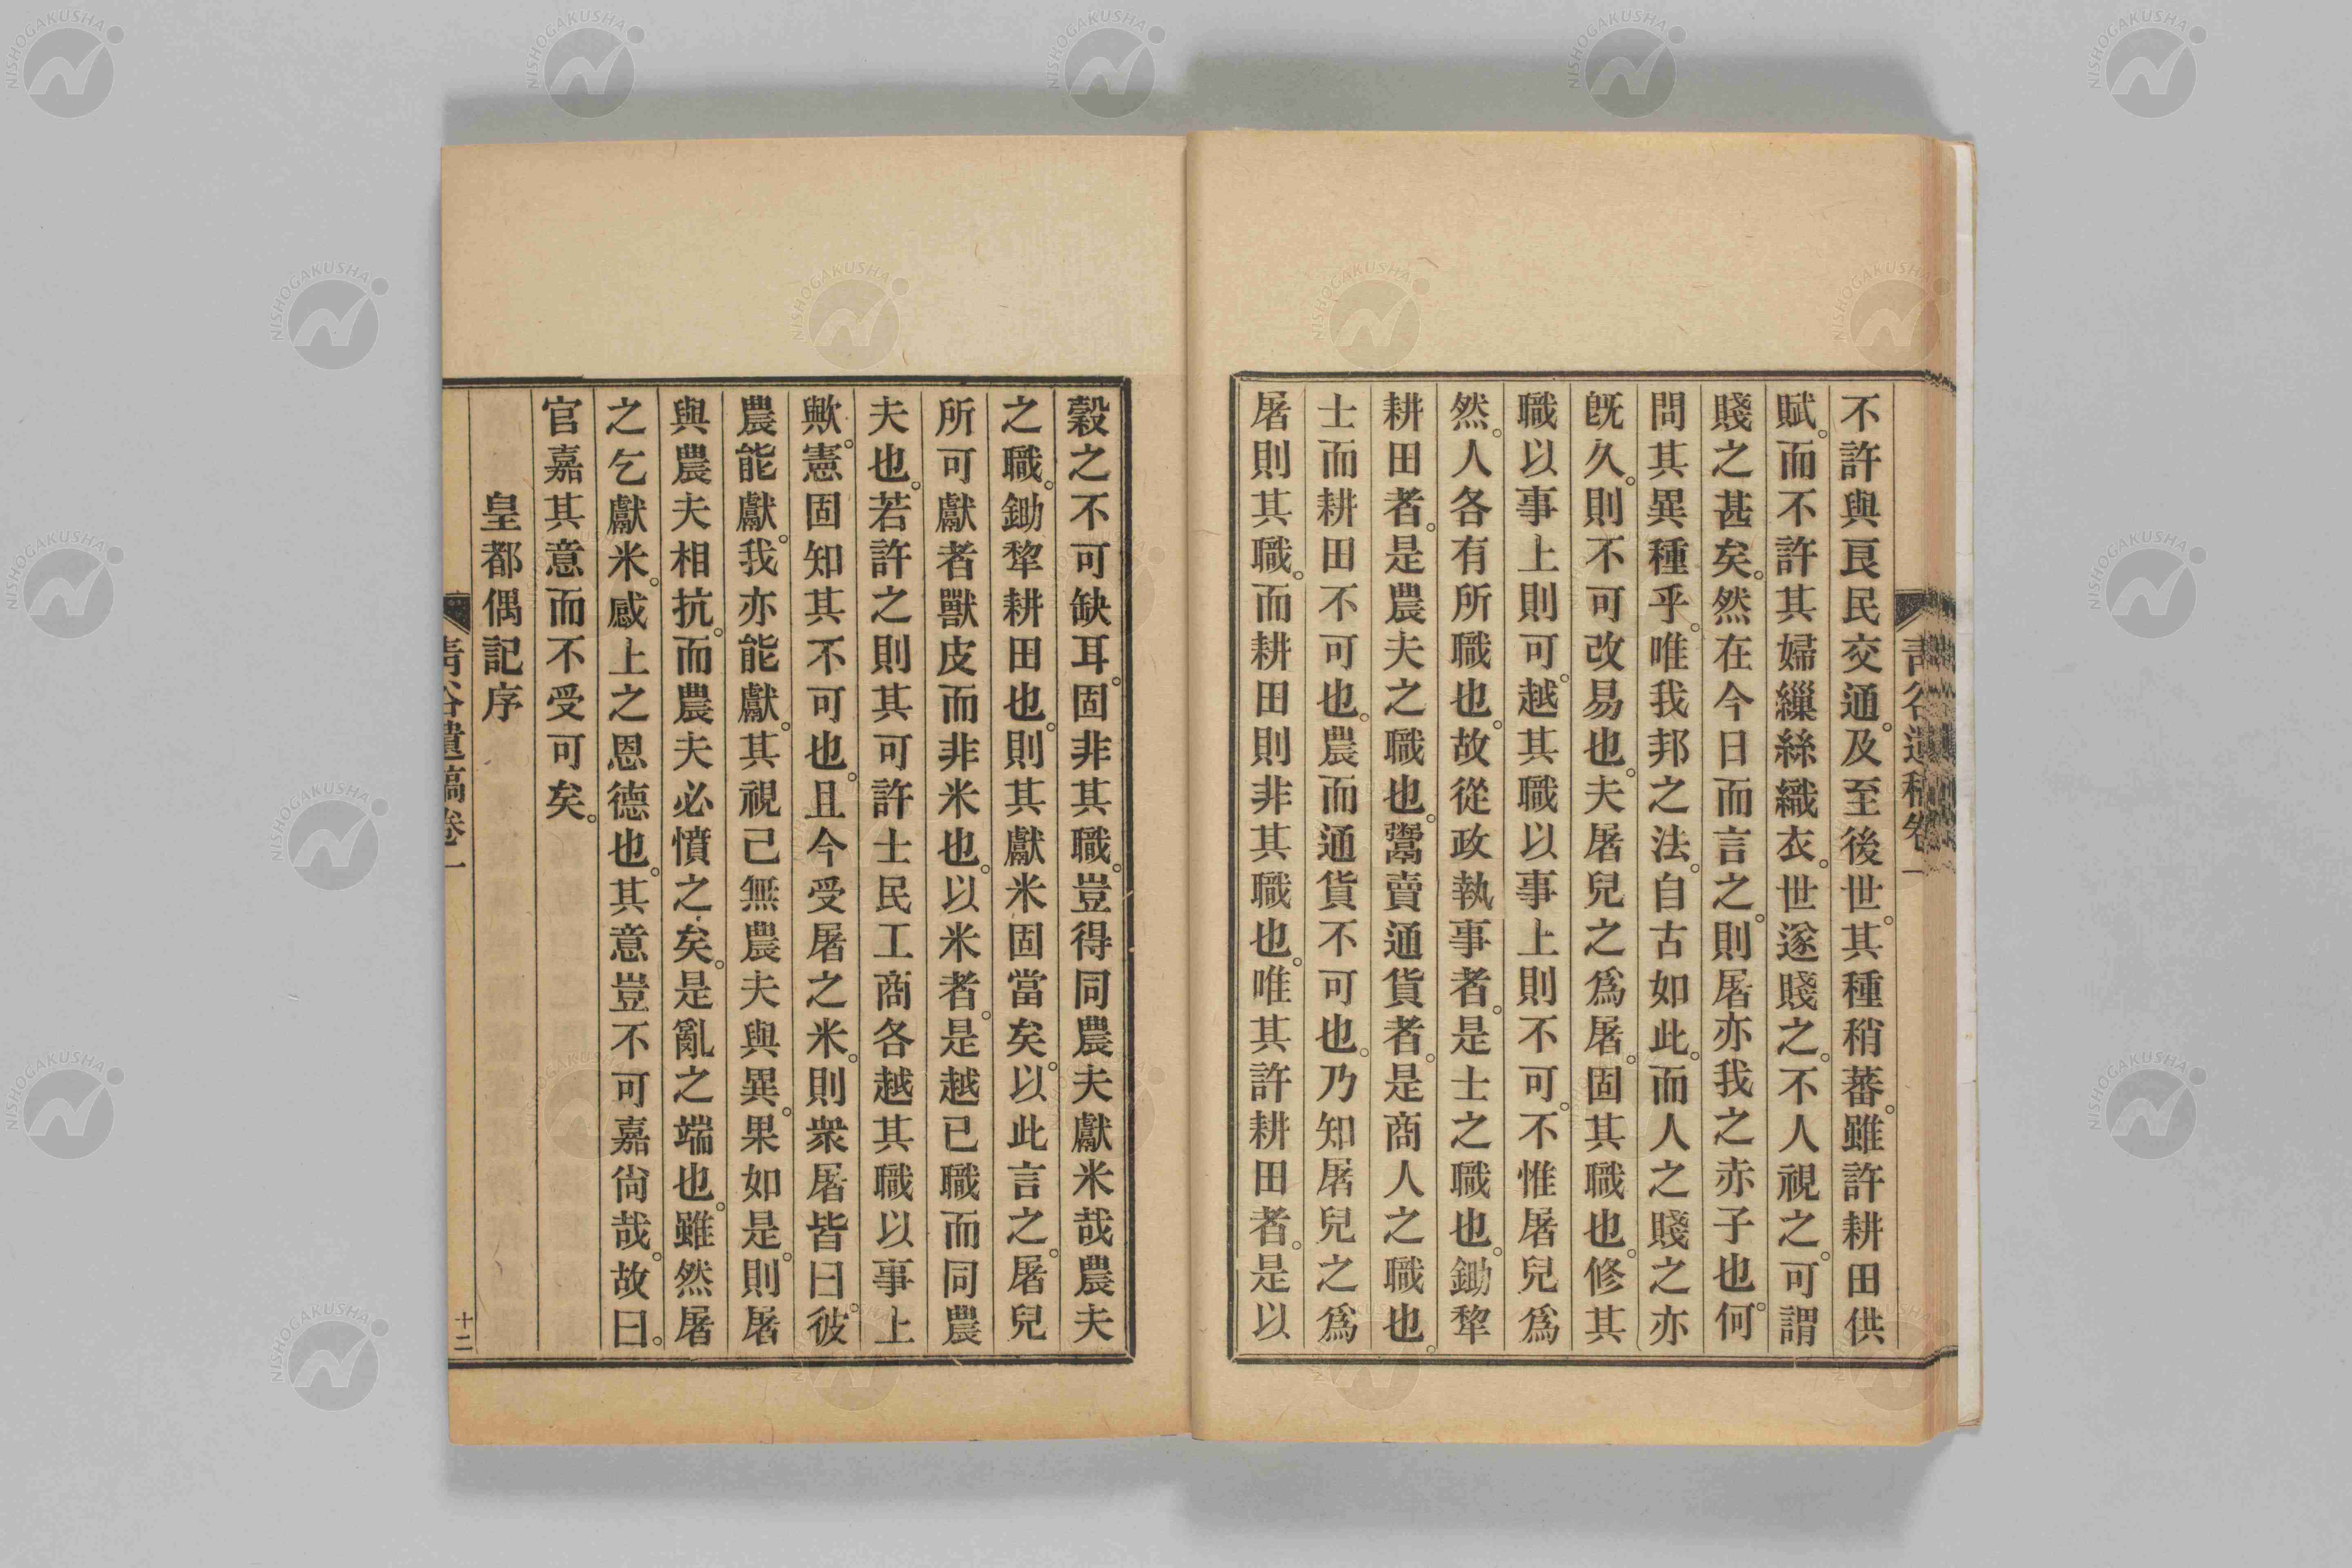 不許與良民交通。及至後世。其種稍蕃。雖許耕田供
賦。而不許其婦繅絲織衣。世遂賤之。不人視之。可謂
賤之甚矣。然在今日而言之。則屠亦我之赤子也。何
問其異種乎。唯我邦之法。自古如此。而人之賤之亦
既久。則不可改易也。夫屠兒之爲屠。固其職也。修其
職以事上則可。越其職以事上則不可。不惟屠兒爲
然。人各有所職也。故從政執事者。是士之職也。鋤犂
耕田者。是農夫之職也。鬻賣通貨者。是商人之職也。
士而耕田不可也。農而通貨不可也。乃知屠兒之爲
屠則其職。而耕田則非其職也。唯其許耕田者。是以
穀之不可缺耳。固非其職。豈得同農夫獻米哉農夫
之職。鋤犂耕田也。則其獻米固當矣。以此言之。屠兒
所可獻者獸皮而非米也。以米者。是越已職而同農
夫也。若許之則其可許士民工商各越其職以事上
歟。憲固知其不可也。且今受屠之米。則衆屠皆曰。彼
農能獻。我亦能獻。其視己無農夫與異。果如是。則屠
與農夫相抗。而農夫必憤之矣。是亂之端也。雖然屠
之乞獻米。感上之恩德也。其意豈不可嘉尙哉。故曰。
官嘉其意而不受可矣。
皇都偶記序
青谷遺稿卷一
十二
NISHOGAKUSHA